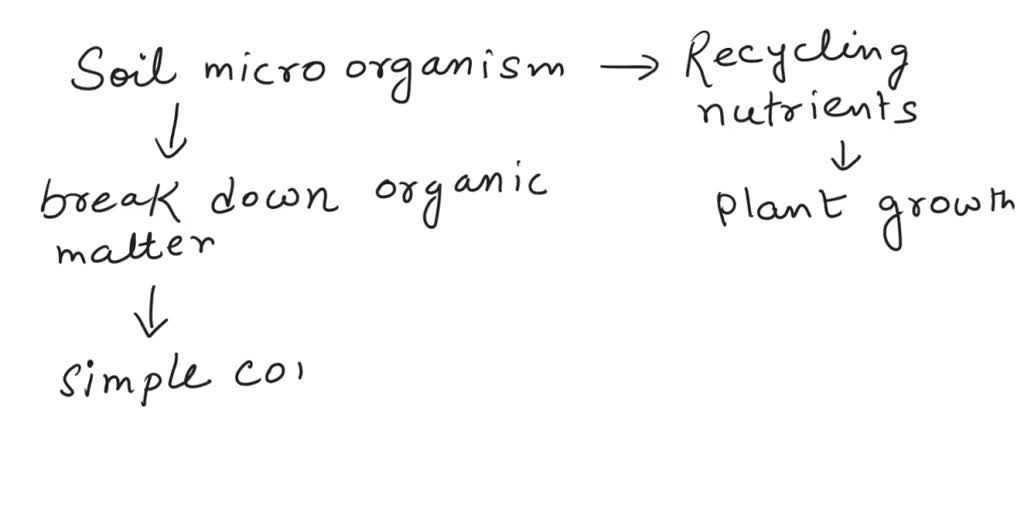 Soil micro organism → Recycling
nutrients
↓
↓
break down organic
plant growth
matter
↓
simple